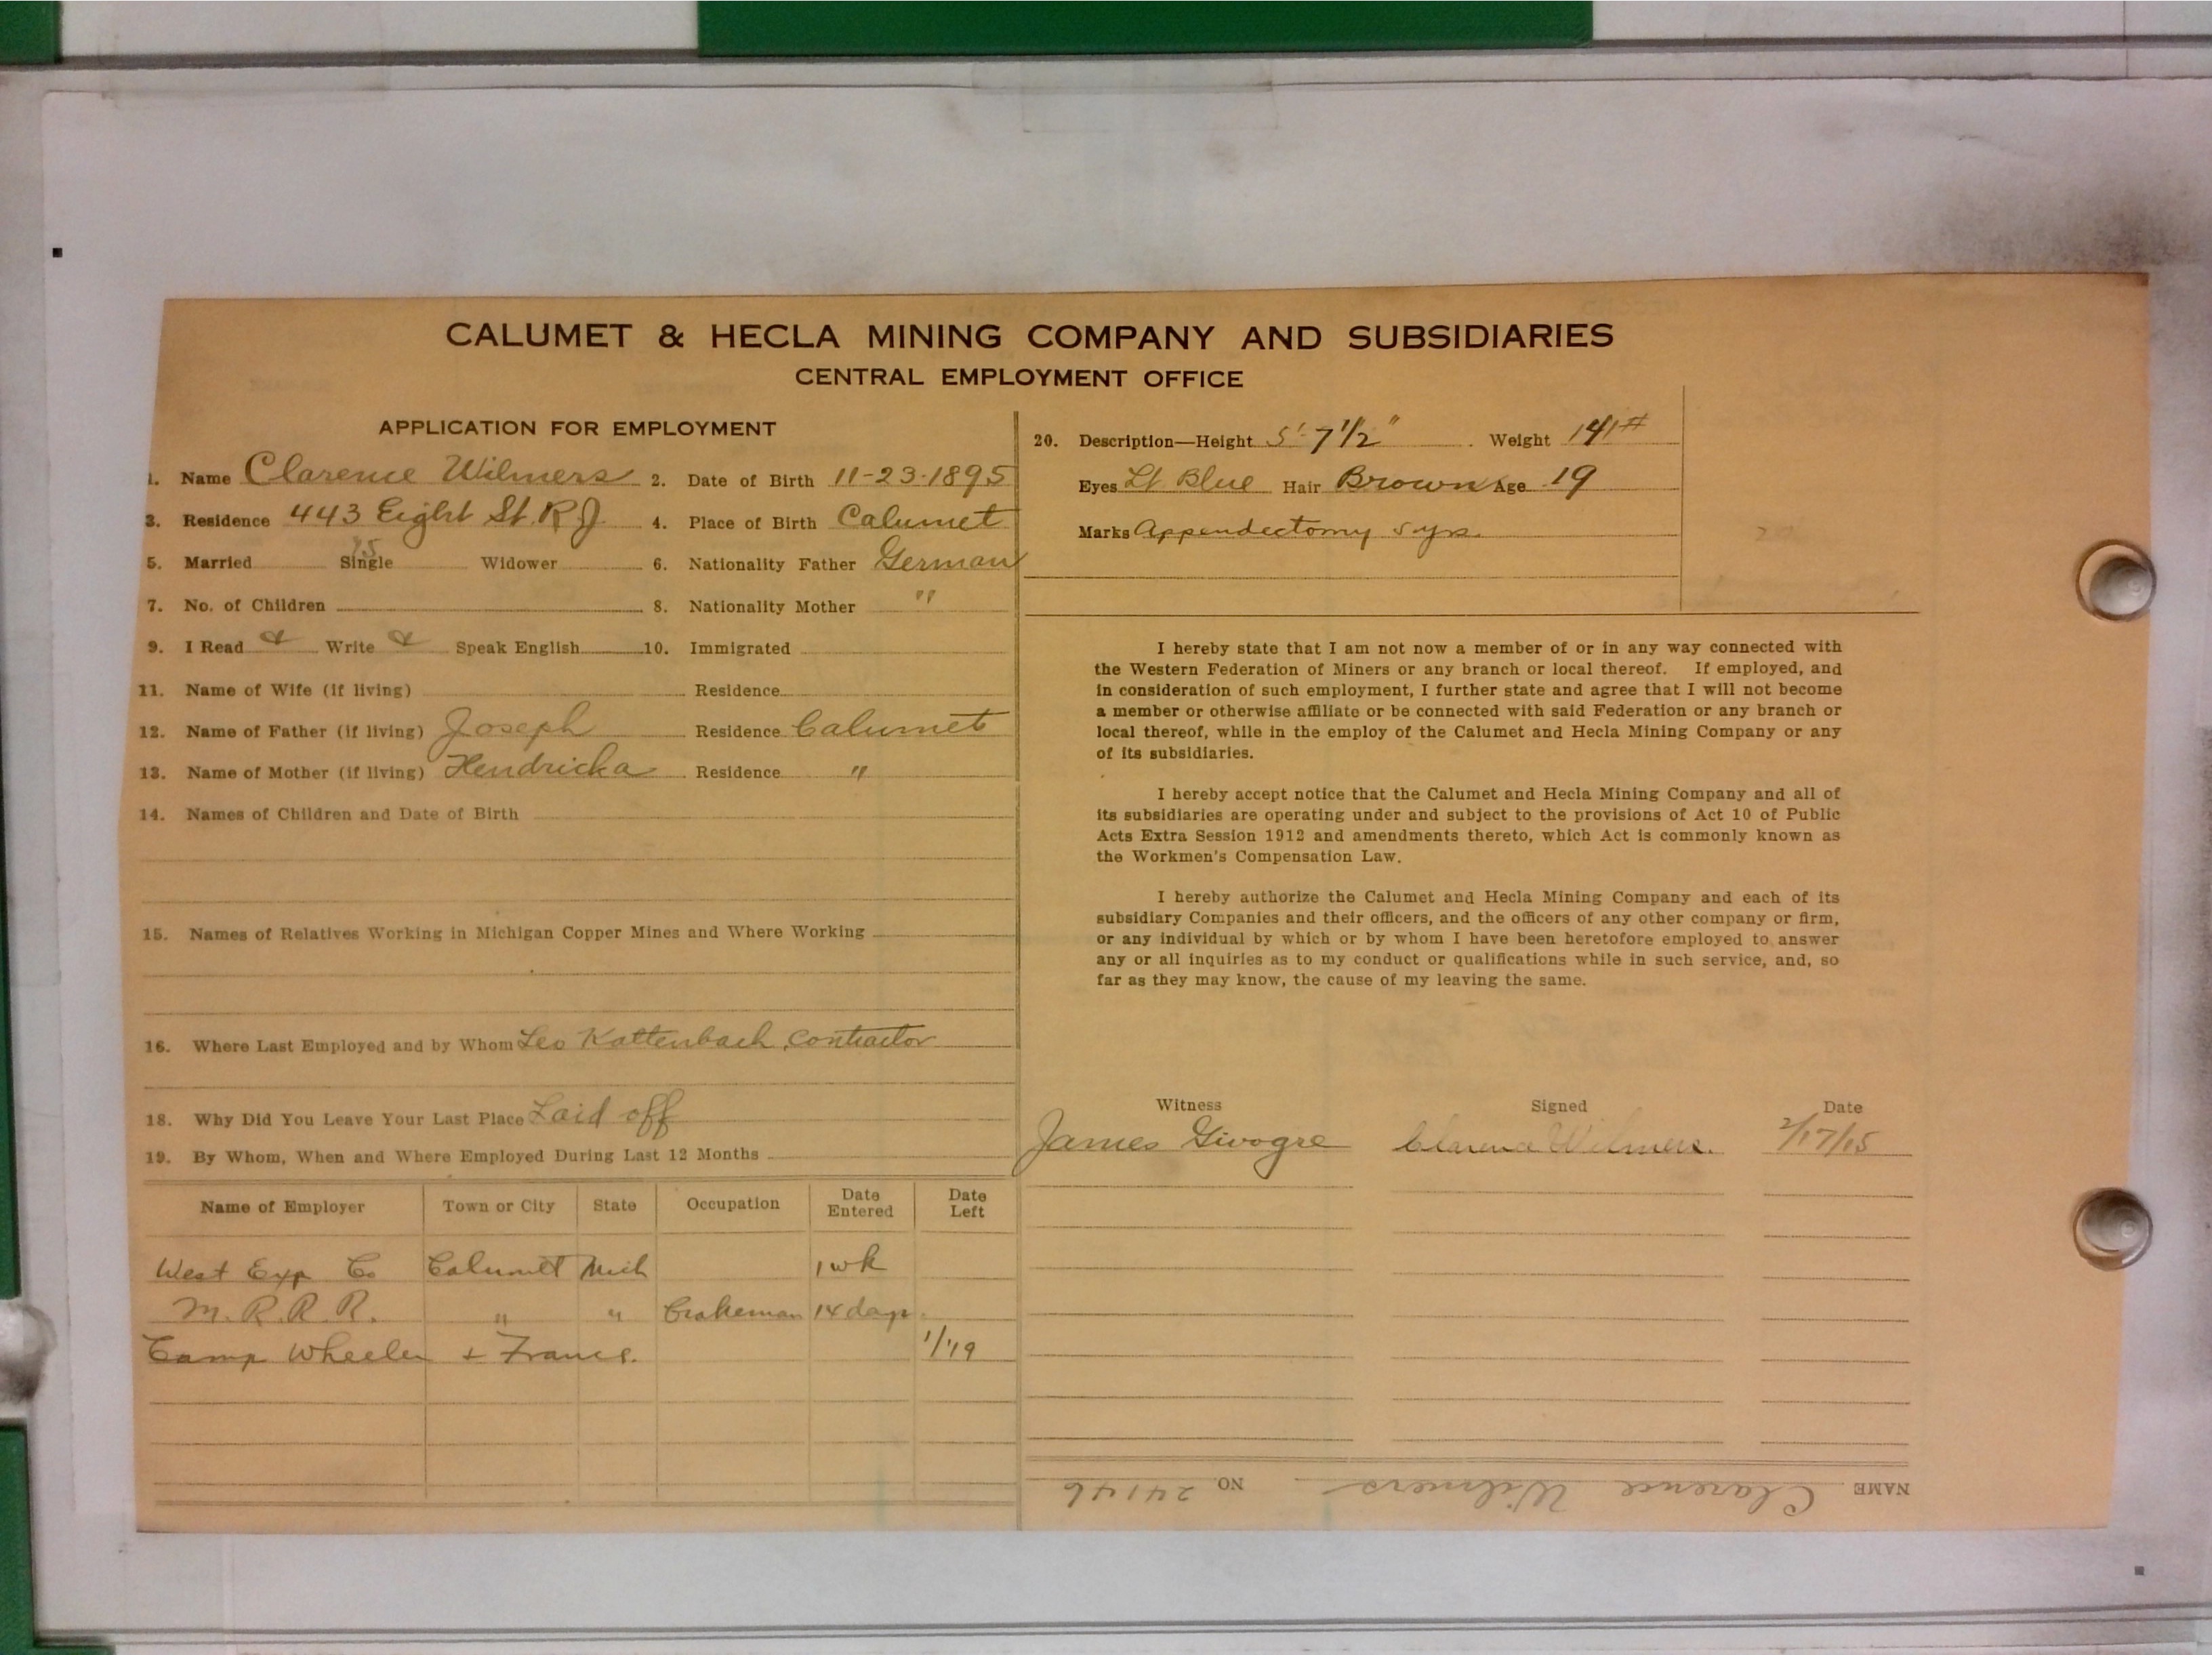 CALUMET & HECLA MINING COMPANY AND SUBSIDIARIES
CENTRAL EMPLOYMENT OFFICE
APPLICATION FOR EMPLOYMENT
1. Name Clarence Wilmers 2. Date of Birth 11-23-1895
3. Residence 443 Eight St. R J. 4. Place of Birth Calumet
15
5. Married Single Widower 6. Nationality Father German
7. No. of Children 8. Nationality Mother "
9. I Read & Write & Speak English 10. Immigrated
11. Name of Wife (if living) Residence
12. Name of Father (if living) Joseph Residence Calumet
13. Name of Mother (if living) Hendricka Residence "
14. Names of Children and Date of Birth
15. Names of Relatives Working in Michigan Copper Mines and Where Working
16. Where Last Employed and by Whom Leo Kattenbach, Contractor
18. Why Did You Leave Your Last Place Laid off
19. By Whom, When and Where Employed During Last 12 Months
Name of Employer Town or City State Occupation Date Entered Date Left
West Exp Co Calumet Mich 1 wk
M. R. R. R. " " Brakeman 14 days
Camp Wheeler + France. 1/19
20. Description—Height 5'-7 1/2" Weight 141#
Eyes Lt Blue Hair Brown Age 19
Marks Appendectomy 5 yrs.
I hereby state that I am not now a member of or in any way connected with
the Western Federation of Miners or any branch or local thereof. If employed, and
in consideration of such employment, I further state and agree that I will not become
a member or otherwise affiliate or be connected with said Federation or any branch or
local thereof, while in the employ of the Calumet and Hecla Mining Company or any
of its subsidiaries.
I hereby accept notice that the Calumet and Hecla Mining Company and all of
its subsidiaries are operating under and subject to the provisions of Act 10 of Public
Acts Extra Session 1912 and amendments thereto, which Act is commonly known as
the Workmen's Compensation Law.
I hereby authorize the Calumet and Hecla Mining Company and each of its
subsidiary Companies and their officers, and the officers of any other company or firm,
or any individual by which or by whom I have been heretofore employed to answer
any or all inquiries as to my conduct or qualifications while in such service, and, so
far as they may know, the cause of my leaving the same.
Witness Signed Date
James Givogre Clarence Wilmers. 2/17/15
NAME Clarence Wilmers NO 24146